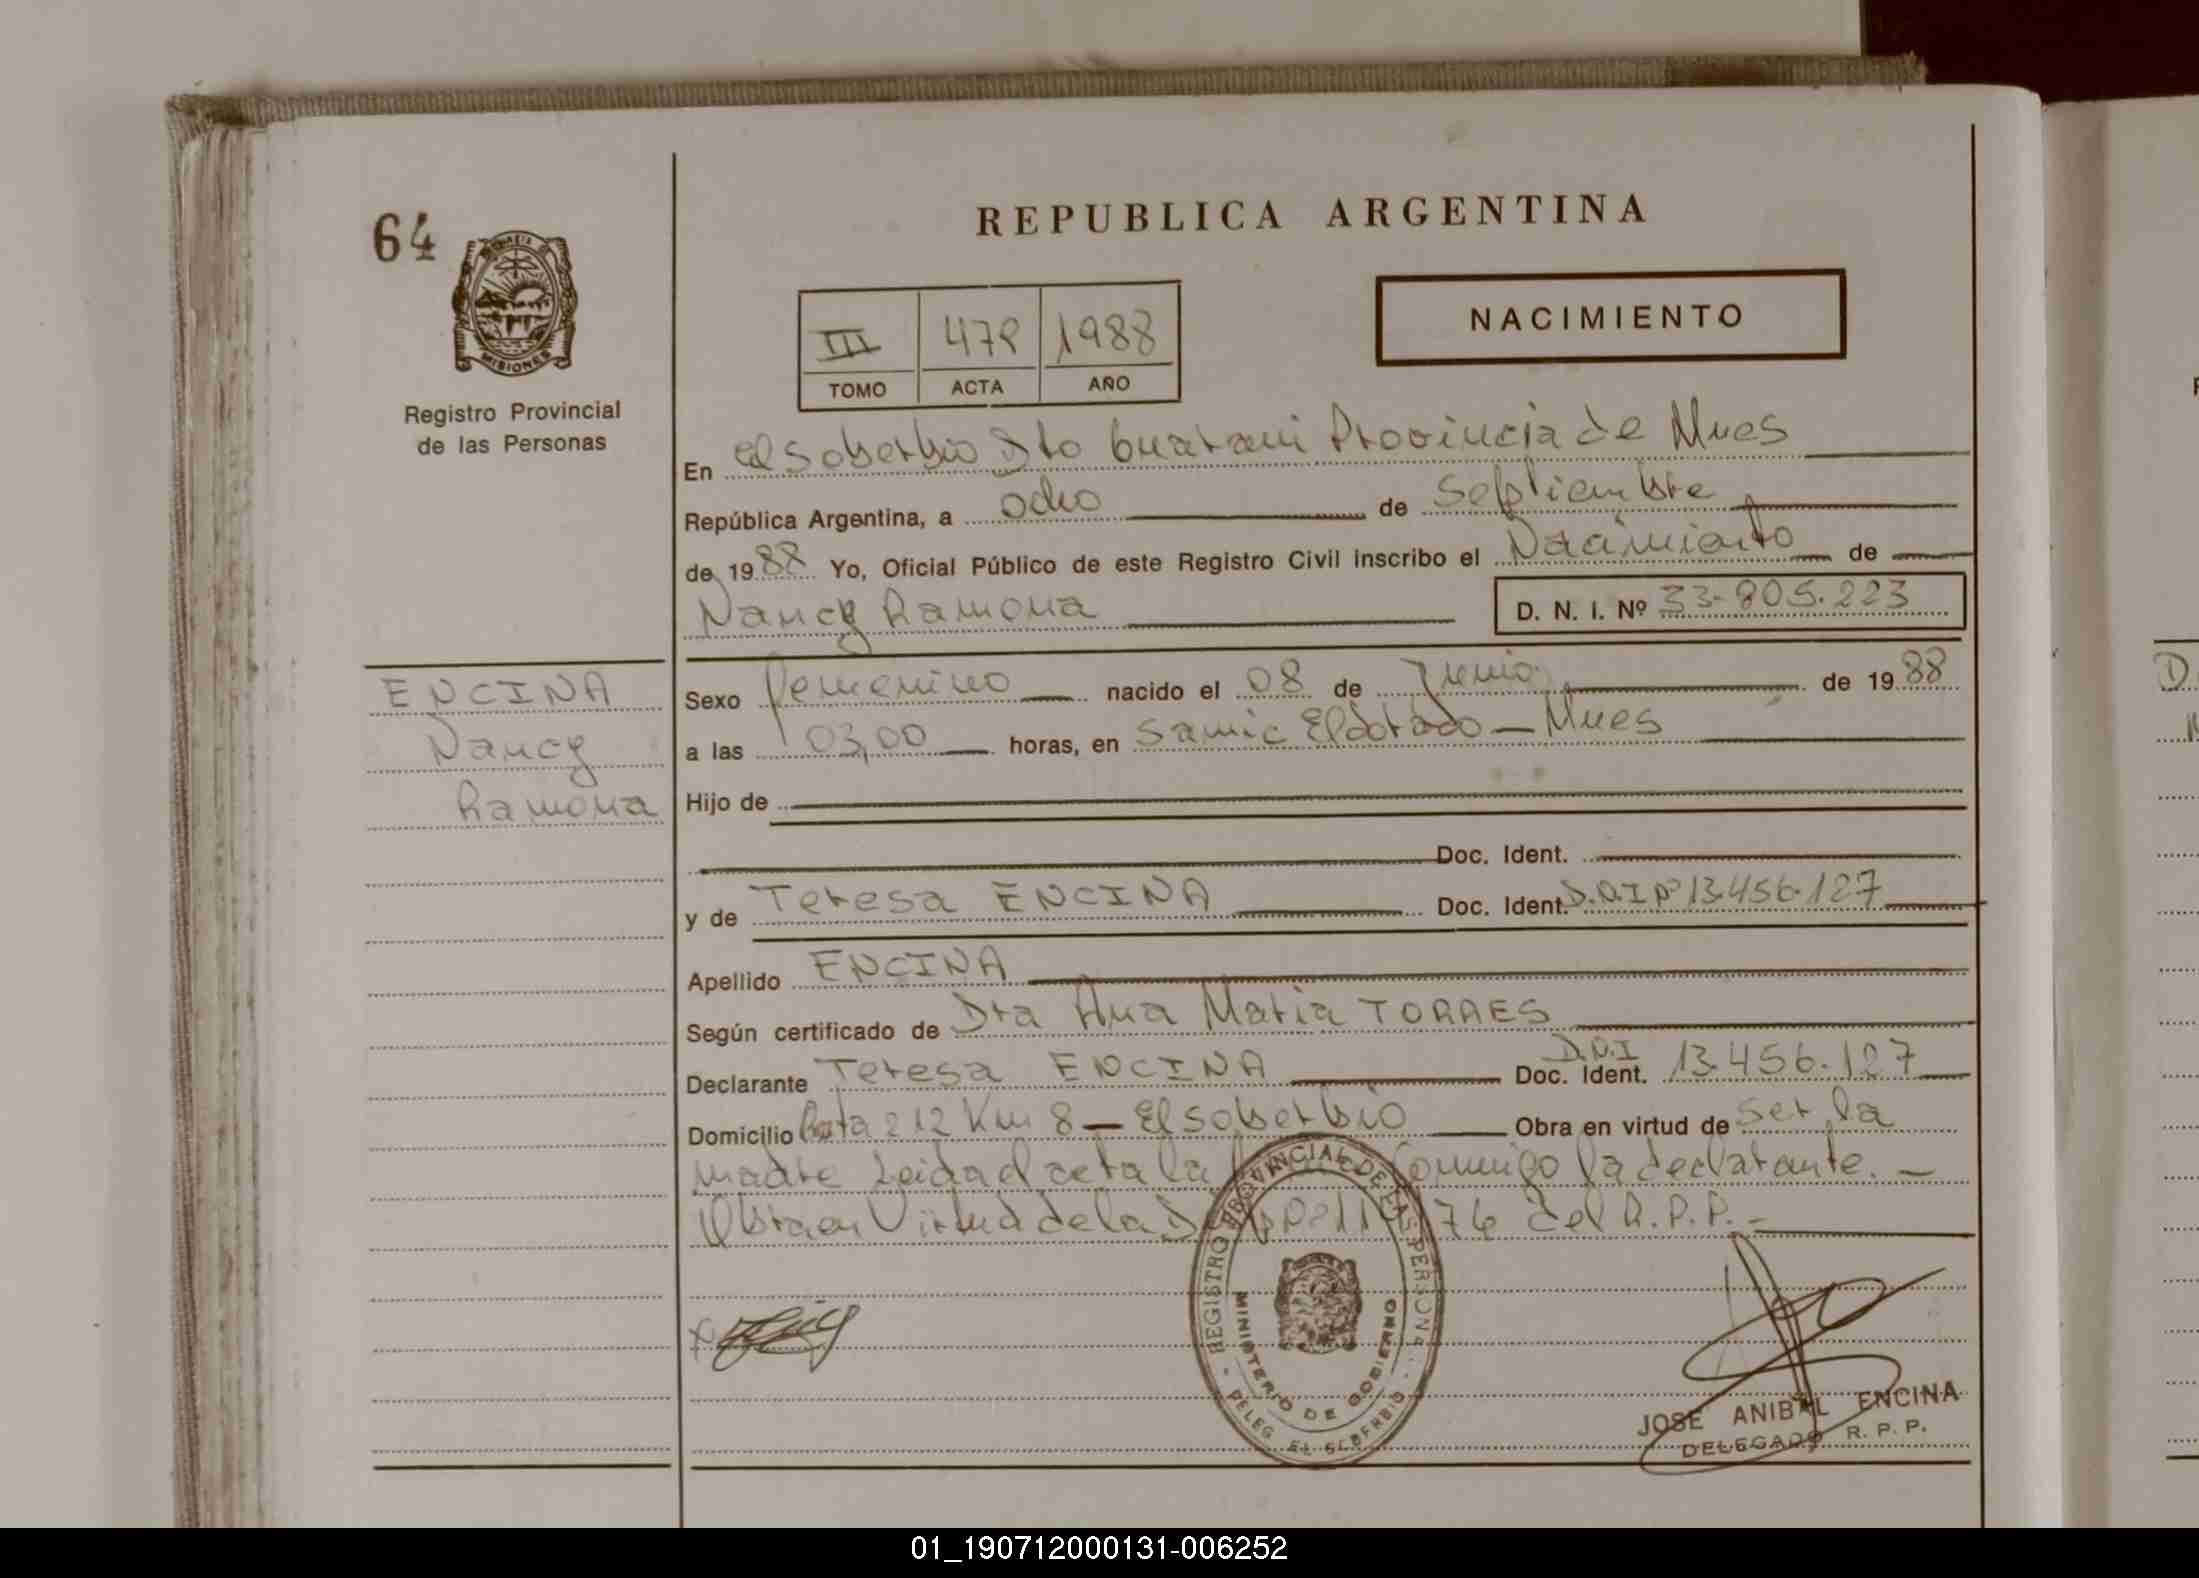 REPUBLICA ARGENTINA
64
MISIONES
Registro Provincial
de las Personas
NACIMIENTO
III 1988
TOMO ACTA AÑO
En El Soberbio Dto Guarani Provincia de Mnes
República Argentina, a ocho de Septiembre
de 1988 Yo, Oficial Público de este Registro Civil inscribo el Nacimiento de
Nancy Ramona D. N. I. Nº 33.805.223
ENCINA
Nancy
Ramona
Sexo femenino nacido el 08 de Junio de 1988
a las 03,00 horas, en Samic Eldorado - Mnes
Hijo de
Doc. Ident.
y de Teresa ENCINA Doc. Ident. D.N.I Nº 13.456.127
Apellido ENCINA
Según certificado de Dra Ana Maria TORRES
Declarante Teresa ENCINA Doc. Ident. D.N.I 13.456.127
Domicilio Ruta 212 Km 8 - El Soberbio Obra en virtud de ser la
madre Leida el acta la conmigo la declarante. -
Obra en Virtud de la 76 del R.P.P. -
REGISTRO PROVINCIAL DE LAS PERSONAS
MINISTERIO DE GOBIERNO
DELEG. EL SOBERBIO
JOSE ANIBAL ENCINA
DELEGADO R. P. P.
01_190712000131-006252